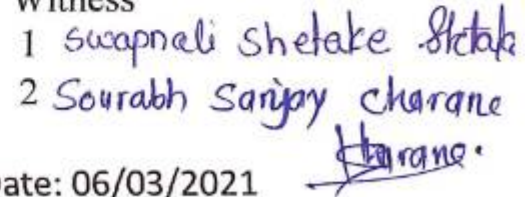 Witness
1 Swapnali Shetake
2 Sourabh Sanjay Charane
Charane.
ate: 06/03/2021